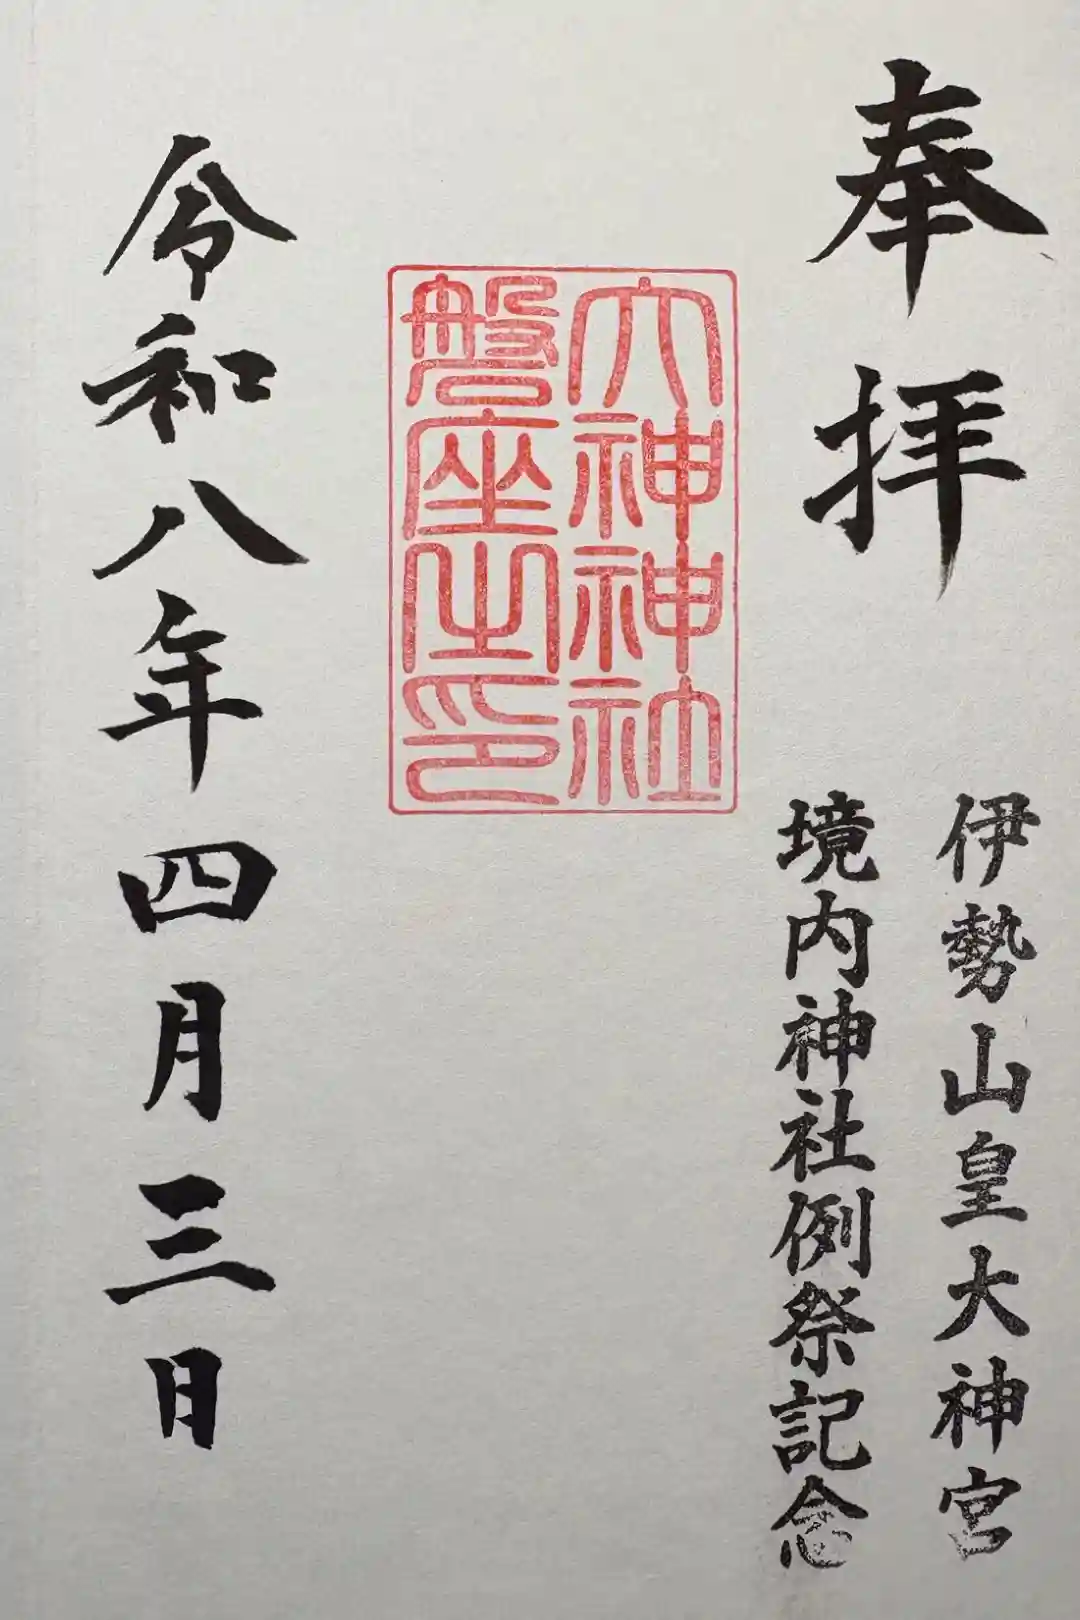 奉拝
伊勢山皇大神宮
境内神社例祭記念
大神神社
磐座之印
令和八年四月三日